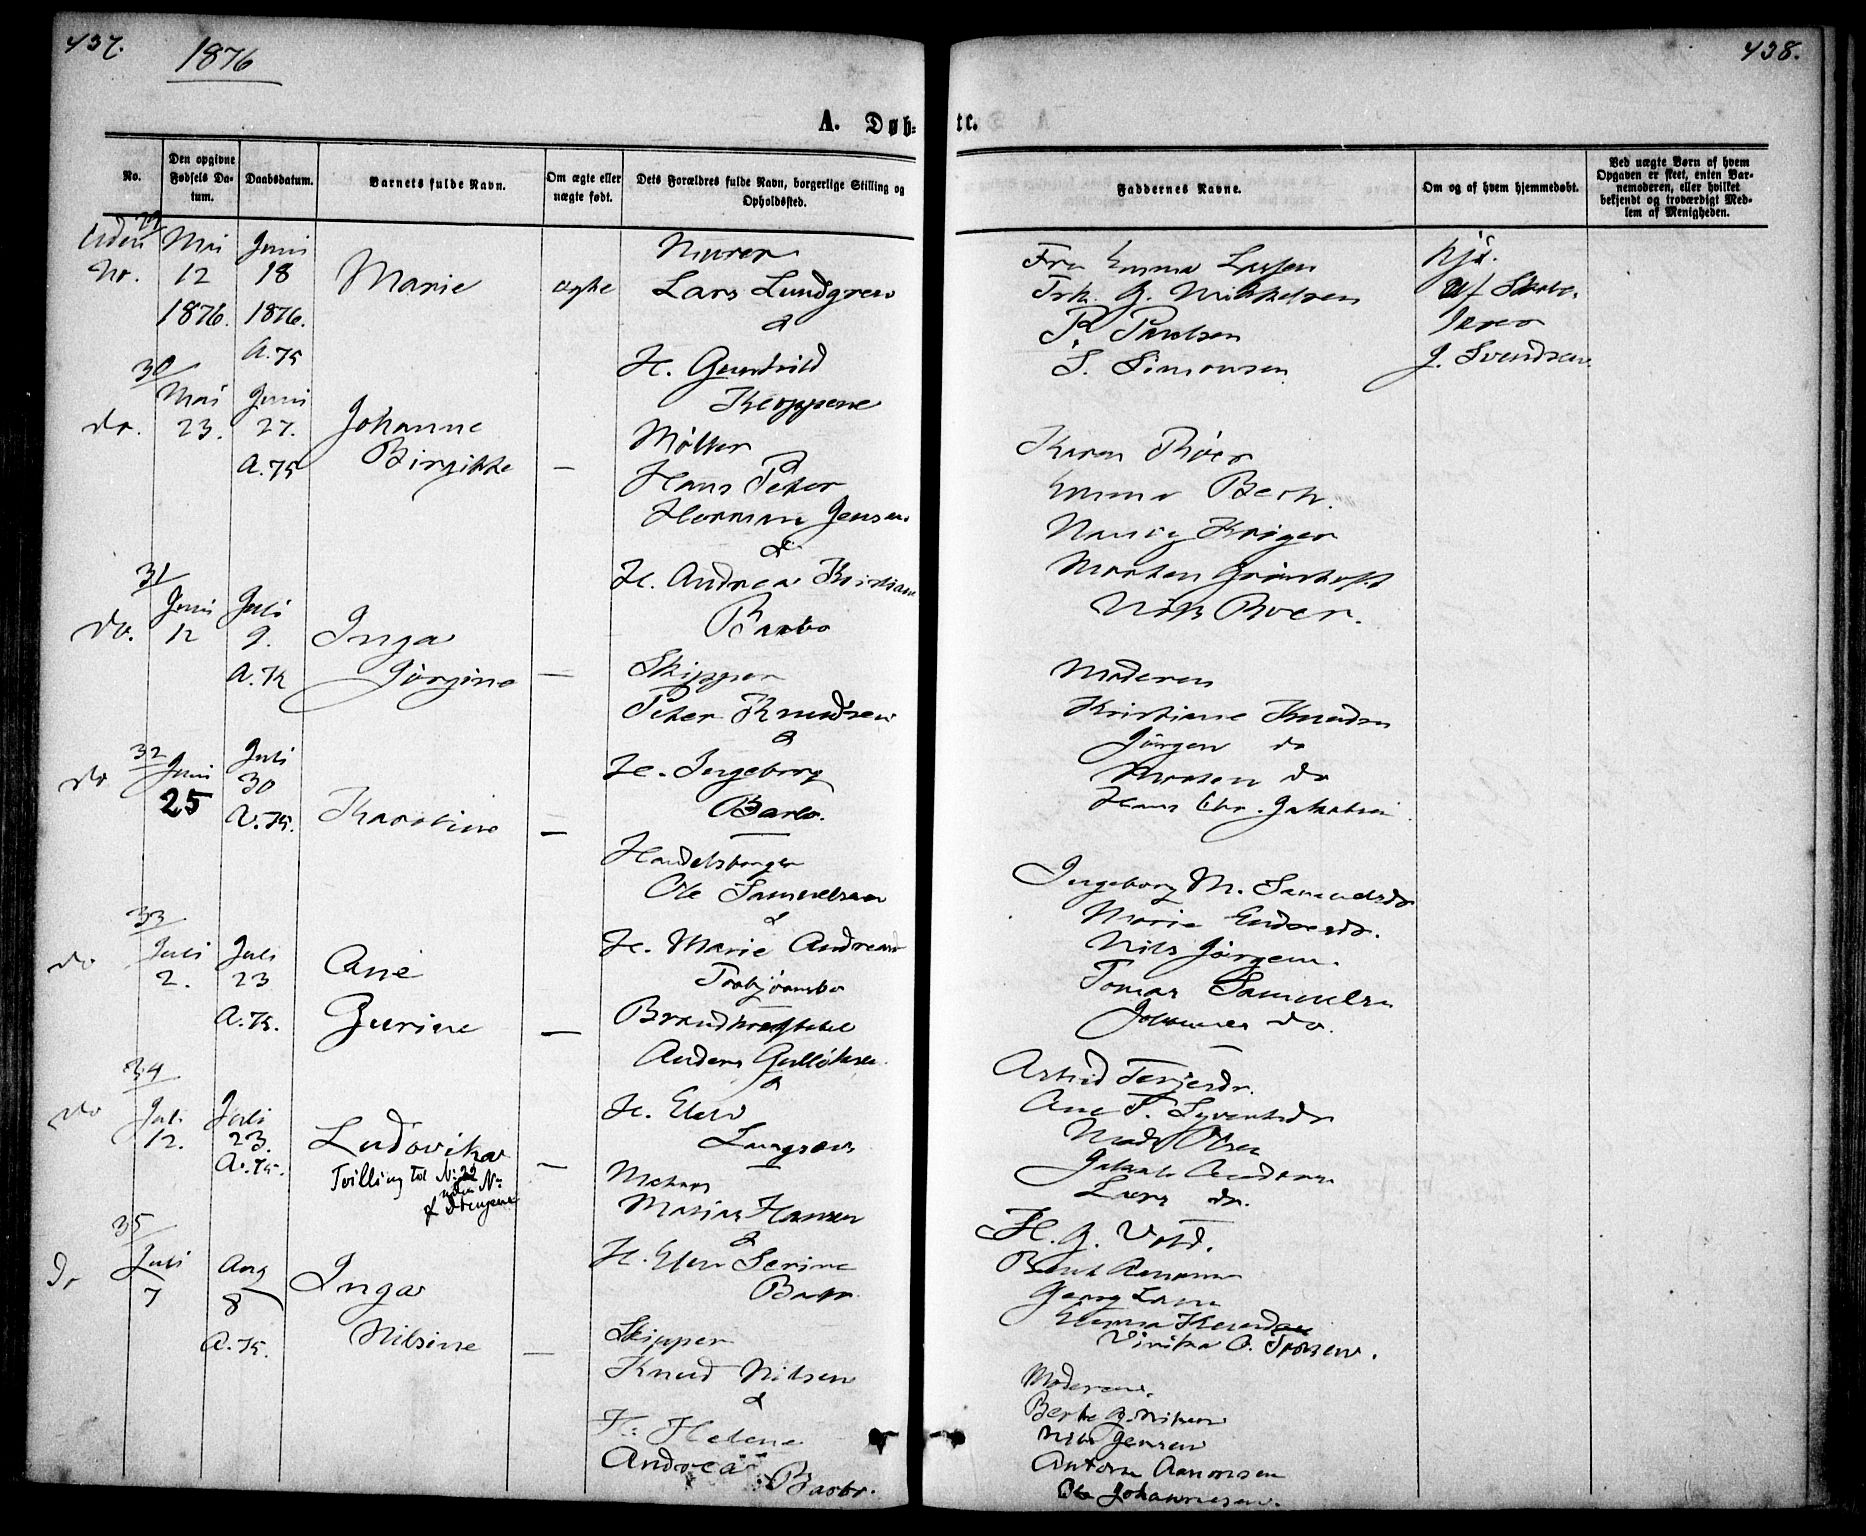 437.
1876
A. Døb-
No.
Den opgivne Fødsels Da-tum.
Daabsdatum.
Barnets fulde Navn.
Om ægte eller uægte født.
Dets Forældres fulde Navn, borgerlige Stilling og Opholdssted.
Uden No.
Mai 12 1876.
Juni 18 1876. A.75
Marie
ægte
Murer
Lars Lundgren
&
H. Gunhild
Kloppene
30
do.
Mai 23.
Juni 27. A.75
Johanne
Birgitte
—
Møller
Hans Peter
Herman Jensen
&
H. Andrea Kristiane
Barbo
31
do.
Juni 12
Juli 9. A.75
Inga
Jørgine
—
Skipper
Peter Knudsen
&
H. Ingeborg
Barbo.
32
do
Juni 25
Juli 30 A.75.
Karoline
—
Handelsborger
Ole Samuelsen
&
H. Marie Andrea
Torbjørnsbo
33
do
Juli 2.
Juli 23 A.75.
Ane
Gurine
—
Brandkonstabel
Anders Gulliksen
&
H. Elen
Langsæv
34
do
Juli 12.
Juli 23. A.75.
Ludovika
Tvilling til No 22
uden No
af Drengene
—
Matias Hansen
&
H. Elen Serine
Barbo
35
do
Juli 7
Aug 8 A.75.
Inga
Nilsine
—
Skipper
Knud Nilsen
&
H. Helene
Andrea
Barbo.
438.
te.
Faddernes Navne.
Om og af hvem hjemmedøbt.
Ved uægte Børn af hvem Opgaven er skeet, enten Bar-nemoderen, eller hvilket bekjendt og troværdigt Med-lem af Menigheden.
Fru Emma Larsen
Frk. G. Mikkelsen
P. Paulsen
S. Simonsen
Hj.
af
J. Svendsen.
Karen Bøer
Emma Berh.
Nancy Krøger
Morten Grønholst
Nils Boer.
Moderen
Kristiane Knudsen
Jørgen do
Morten do
Hans Chr. Jakobsen
Ingeborg M. Samuelsdr
Marie Endresdr.
Nils Jørgens.
Tomas Samuelsen
Johannes do.
Astrid Terjesdr.
Ane T. Syvertsdr
Mads Olsen
Jakob Anders
Lars do.
H. G. Vold.
Bent Aanonsen
Georg Lam
Emma Knudsen
Vivika O. Tomsen.
Moderen.
Berte G. Nilsen
Nils Jensen
Antom Aanonsen
Ole Johannesen.